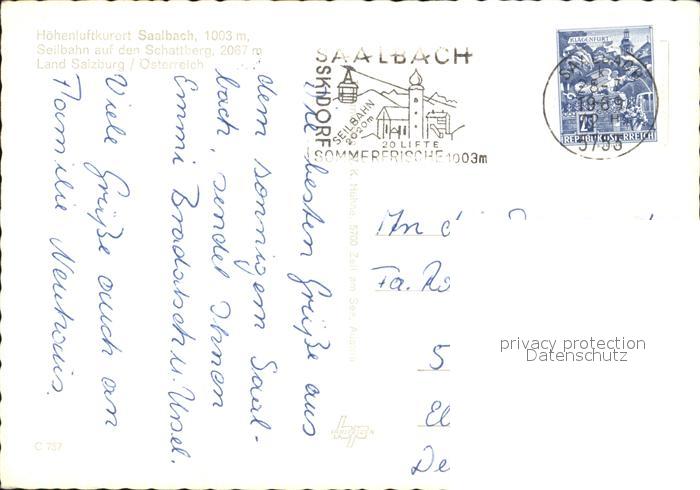 Höhenluftkurort Saalbach, 1003 m,
Seilbahn auf den Schattberg, 2067 m
Land Salzburg / Österreich
SAALBACH
SKIDORF
SEILBAHN
2020m
20 LIFTE
SOMMERFRISCHE 1003m
KLAGENFURT
REPUBLIK ÖSTERREICH
SAALBACH
1969
5753
Die besten Grüße aus
dem sonnigen Saal-
bach, sendet Ihnen
Emmi Bradatsch u. Ursel.
Viele Grüße auch an
Familie Neuhaus.
K. Hühne, 5700 Zell am See, Austria
An d
Fa. Ro
5
El
De
privacy protection
Datenschutz
C 757